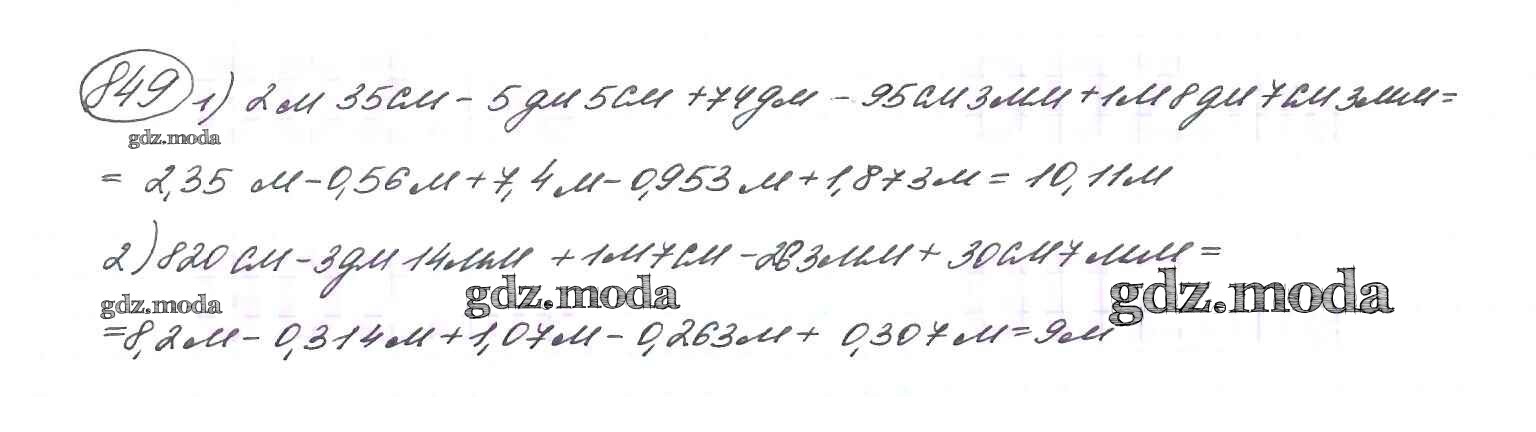 849 1) 2м 35см - 5дм 5см + 74дм - 95см 3мм + 1м 8дм 7см 3мм =
gdz.moda
= 2,35 м - 0,56м + 7,4м - 0,953м + 1,873м = 10,11м
2) 820см - 3дм 14мм + 1м 7см - 263мм + 30см 7мм =
gdz.moda gdz.moda gdz.moda
= 8,2м - 0,314м + 1,07м - 0,263м + 0,307м = 9м